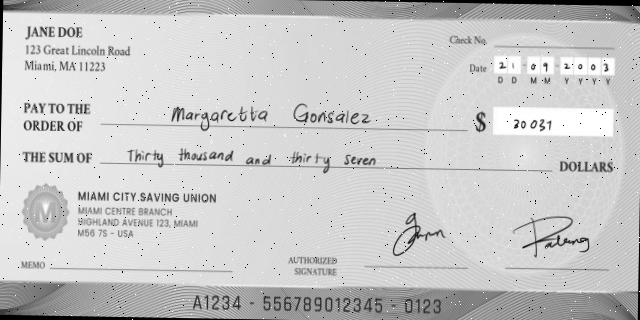 JANE DOE
123 Great Lincoln Road
Miami, MA 11223
Check No.
Date 21-09-2003
D D M M Y Y Y Y
PAY TO THE
ORDER OF Margaretta Gonsalez
$ 30037
THE SUM OF Thirty thousand and thirty seven DOLLARS
MIAMI CITY.SAVING UNION
MIAMI CENTRE BRANCH
HIGHLAND AVENUE 123, MIAMI
M56 7S - USA
M
MEMO
AUTHORIZED
SIGNATURE
A1234 - 556789012345 - 0123